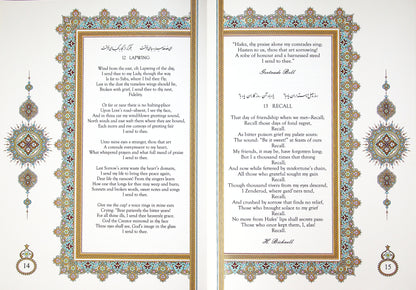 12 LAPWING
Wind from the east, oh Lapwing of the day,
I send thee to my Lady, though the way
Is far to Saba, where I bid thee fly;
Lest in the dust thy tameless wings should lie,
Broken with grief, I send thee to thy nest,
Fidelity.
Or far or near there is no halting-place
Upon Love's road—absent, I see thy face,
And in thine ear my wind-blown greetings sound,
North winds and east waft them where they are bound,
Each morn and eve convoys of greeting fair
I send to thee.
Unto mine eyes a stranger, thou that art
A comrade ever-present to my heart,
What whispered prayers and what full meed of praise
I send to thee.
Lest Sorrow's army waste thy heart's domain,
I send my life to bring thee peace again,
Dear life thy ransom! From thy singers learn
How one that longs for thee may weep and burn;
Sonnets and broken words, sweet notes and songs
I send to thee.
Give me the cup! a voice rings in mine ears
Crying: "Bear patiently the bitter years!
For all thine ills, I send thee heavenly grace.
God the Creator mirrored in thy face
Thine eyes shall see, God's image in the glass
I send to thee.
14
"Hafez, thy praise alone my comrades sing;
Hasten to us, thou that art sorrowing!
A robe of honour and a harnessed steed
I send to thee."
Gertrude Bell
13 RECALL
That day of friendship when we met—Recall;
Recall those days of fond regret,
Recall.
As bitter poison grief my palate sours:
The sound: "Be it sweet!" at feasts of ours
Recall.
My friends, it may be, have forgotten long;
But I a thousand times that throng
Recall.
And now while fettered by misfortune's chain,
All those who grateful sought my gain
Recall.
Though thousand rivers from my eyes descend,
I Zenderud, where gard'ners tend,
Recall.
And crushed by sorrow that finds no relief,
Those who brought solace to my grief
Recall.
No more from Hafez' lips shall secrets pass:
Those who once kept them, I, alas!
Recall.
H. Bicknell
15